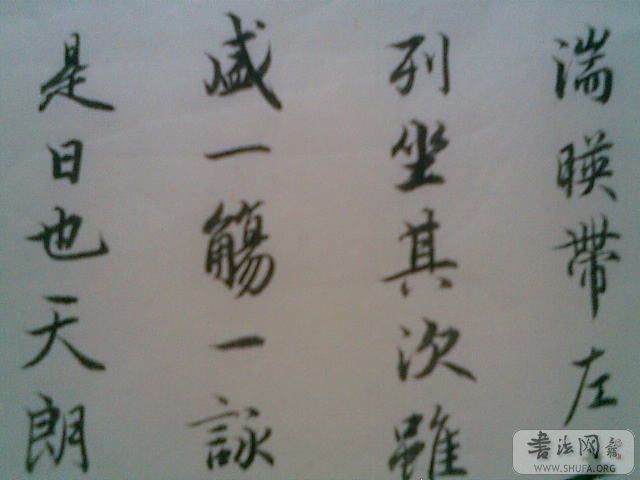 湍暎帶左
列坐其次雖
盛一觴一詠
是日也天朗
書法网
WWW.SHUFA.ORG